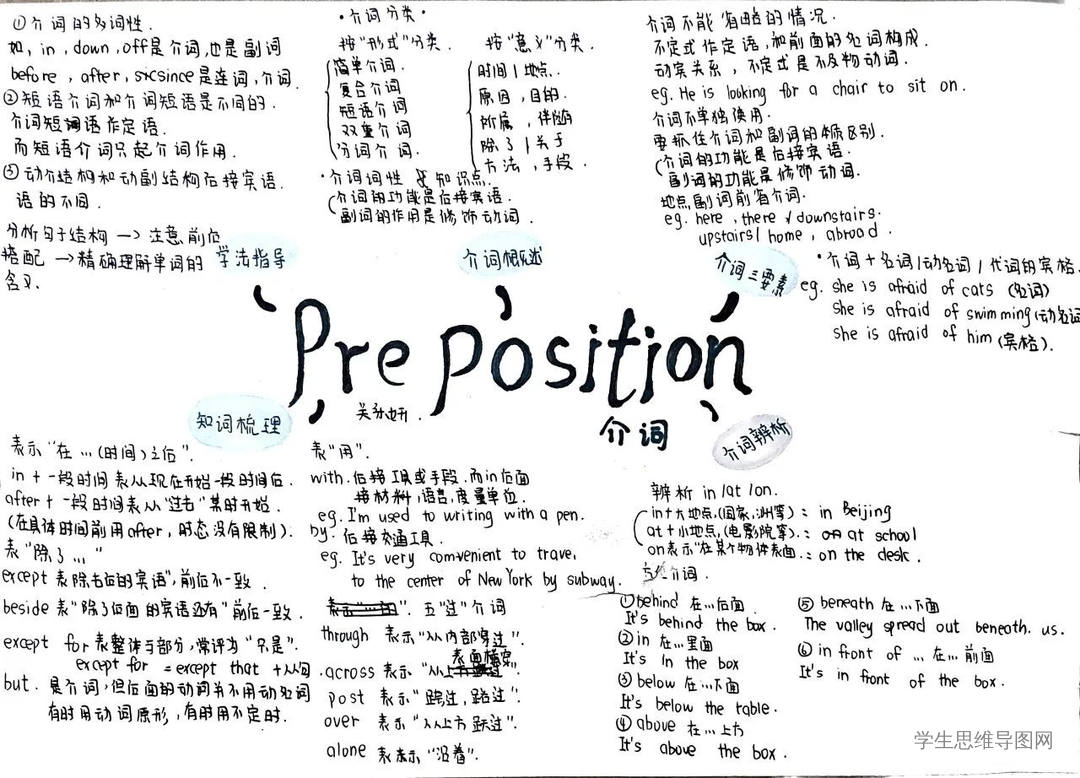 ①介词的多词性.
如, in, down, off是介词,也是副词
before, after, since是连词,介词.
②短语介词和介词短语是不同的.
介词短语作定语.
而短语介词只起介词作用.
③动介结构和动副结构后接宾语.
语的不同.
分析句子结构 —> 注意前后
搭配 —>精确理解单词的
含义.
学法指导
·介词分类·
按"形式"分类.
简单介词.
复合介词
短语介词
双重介词
分词介词.
按"意义"分类.
时间|地点.
原因,目的.
所属,伴随
除了|关于
方法,手段.
·介词词性 及知识点.
介词的功能是后接宾语.
副词的作用是修饰动词.
介词概述
介词不能省略的情况.
不定式作定语,和前面的名词构成.
动宾关系,不定式是不及物动词.
eg. He is looking for a chair to sit on.
介词不单独使用.
要抓住介词和副词的本质区别.
介词的功能是后接宾语.
副词的功能是修饰动词.
地点副词前省介词.
eg. here, there √downstairs.
upstairs/ home, abroad.
介词三要素
·介词+名词/动名词/代词的宾格.
eg. she is afraid of cats (名词)
she is afraid of swimming(动名词
she is afraid of him (宾格).
Preposition
介词
知词梳理
表示"在…(时间)之后".
in+一段时间表从现在开始一段时间后.
after+一段时间表从"过去"某时开始.
(在具体时间前用after,时态没有限制).
表"除了…"
except 表除去后的宾语",前后不一致.
beside 表"除了后面的宾语还有"前后一致.
except for 表整体与部分,常译为"只是".
except for =except that +从句
but. 是介词,但后面的动词并不用动名词
有时用动词原形,有时用不定时.
表"用".
with.后接工具或手段.而in后面
接材料,语言,度量单位.
eg. I'm used to writing with a pen.
by.后接交通工具.
eg. It's very convenient to travel
to the center of New York by subway.
五"过"介词
through 表示"从内部穿过".
表面横穿
across 表示"从
post 表示"踩过,路过".
over 表示"从上方跃过".
alone 表示"沿着".
介词辨析
辨析 in/at/on.
in+大地点,(国家,洲等).: in Beijing
at+小地点,(电影院等).: at school
on表示"在某个物体表面.: on the desk.
方位介词.
①behind 在…后面
It's behind the box.
②in 在…里面
It's in the box
③below 在…下面
It's below the table.
④above 在…上方
It's above the box.
⑤ beneath 在…下面
The valley spread out beneath. us.
⑥ in front of … 在… 前面
It's in front of the box.
学生思维导图网